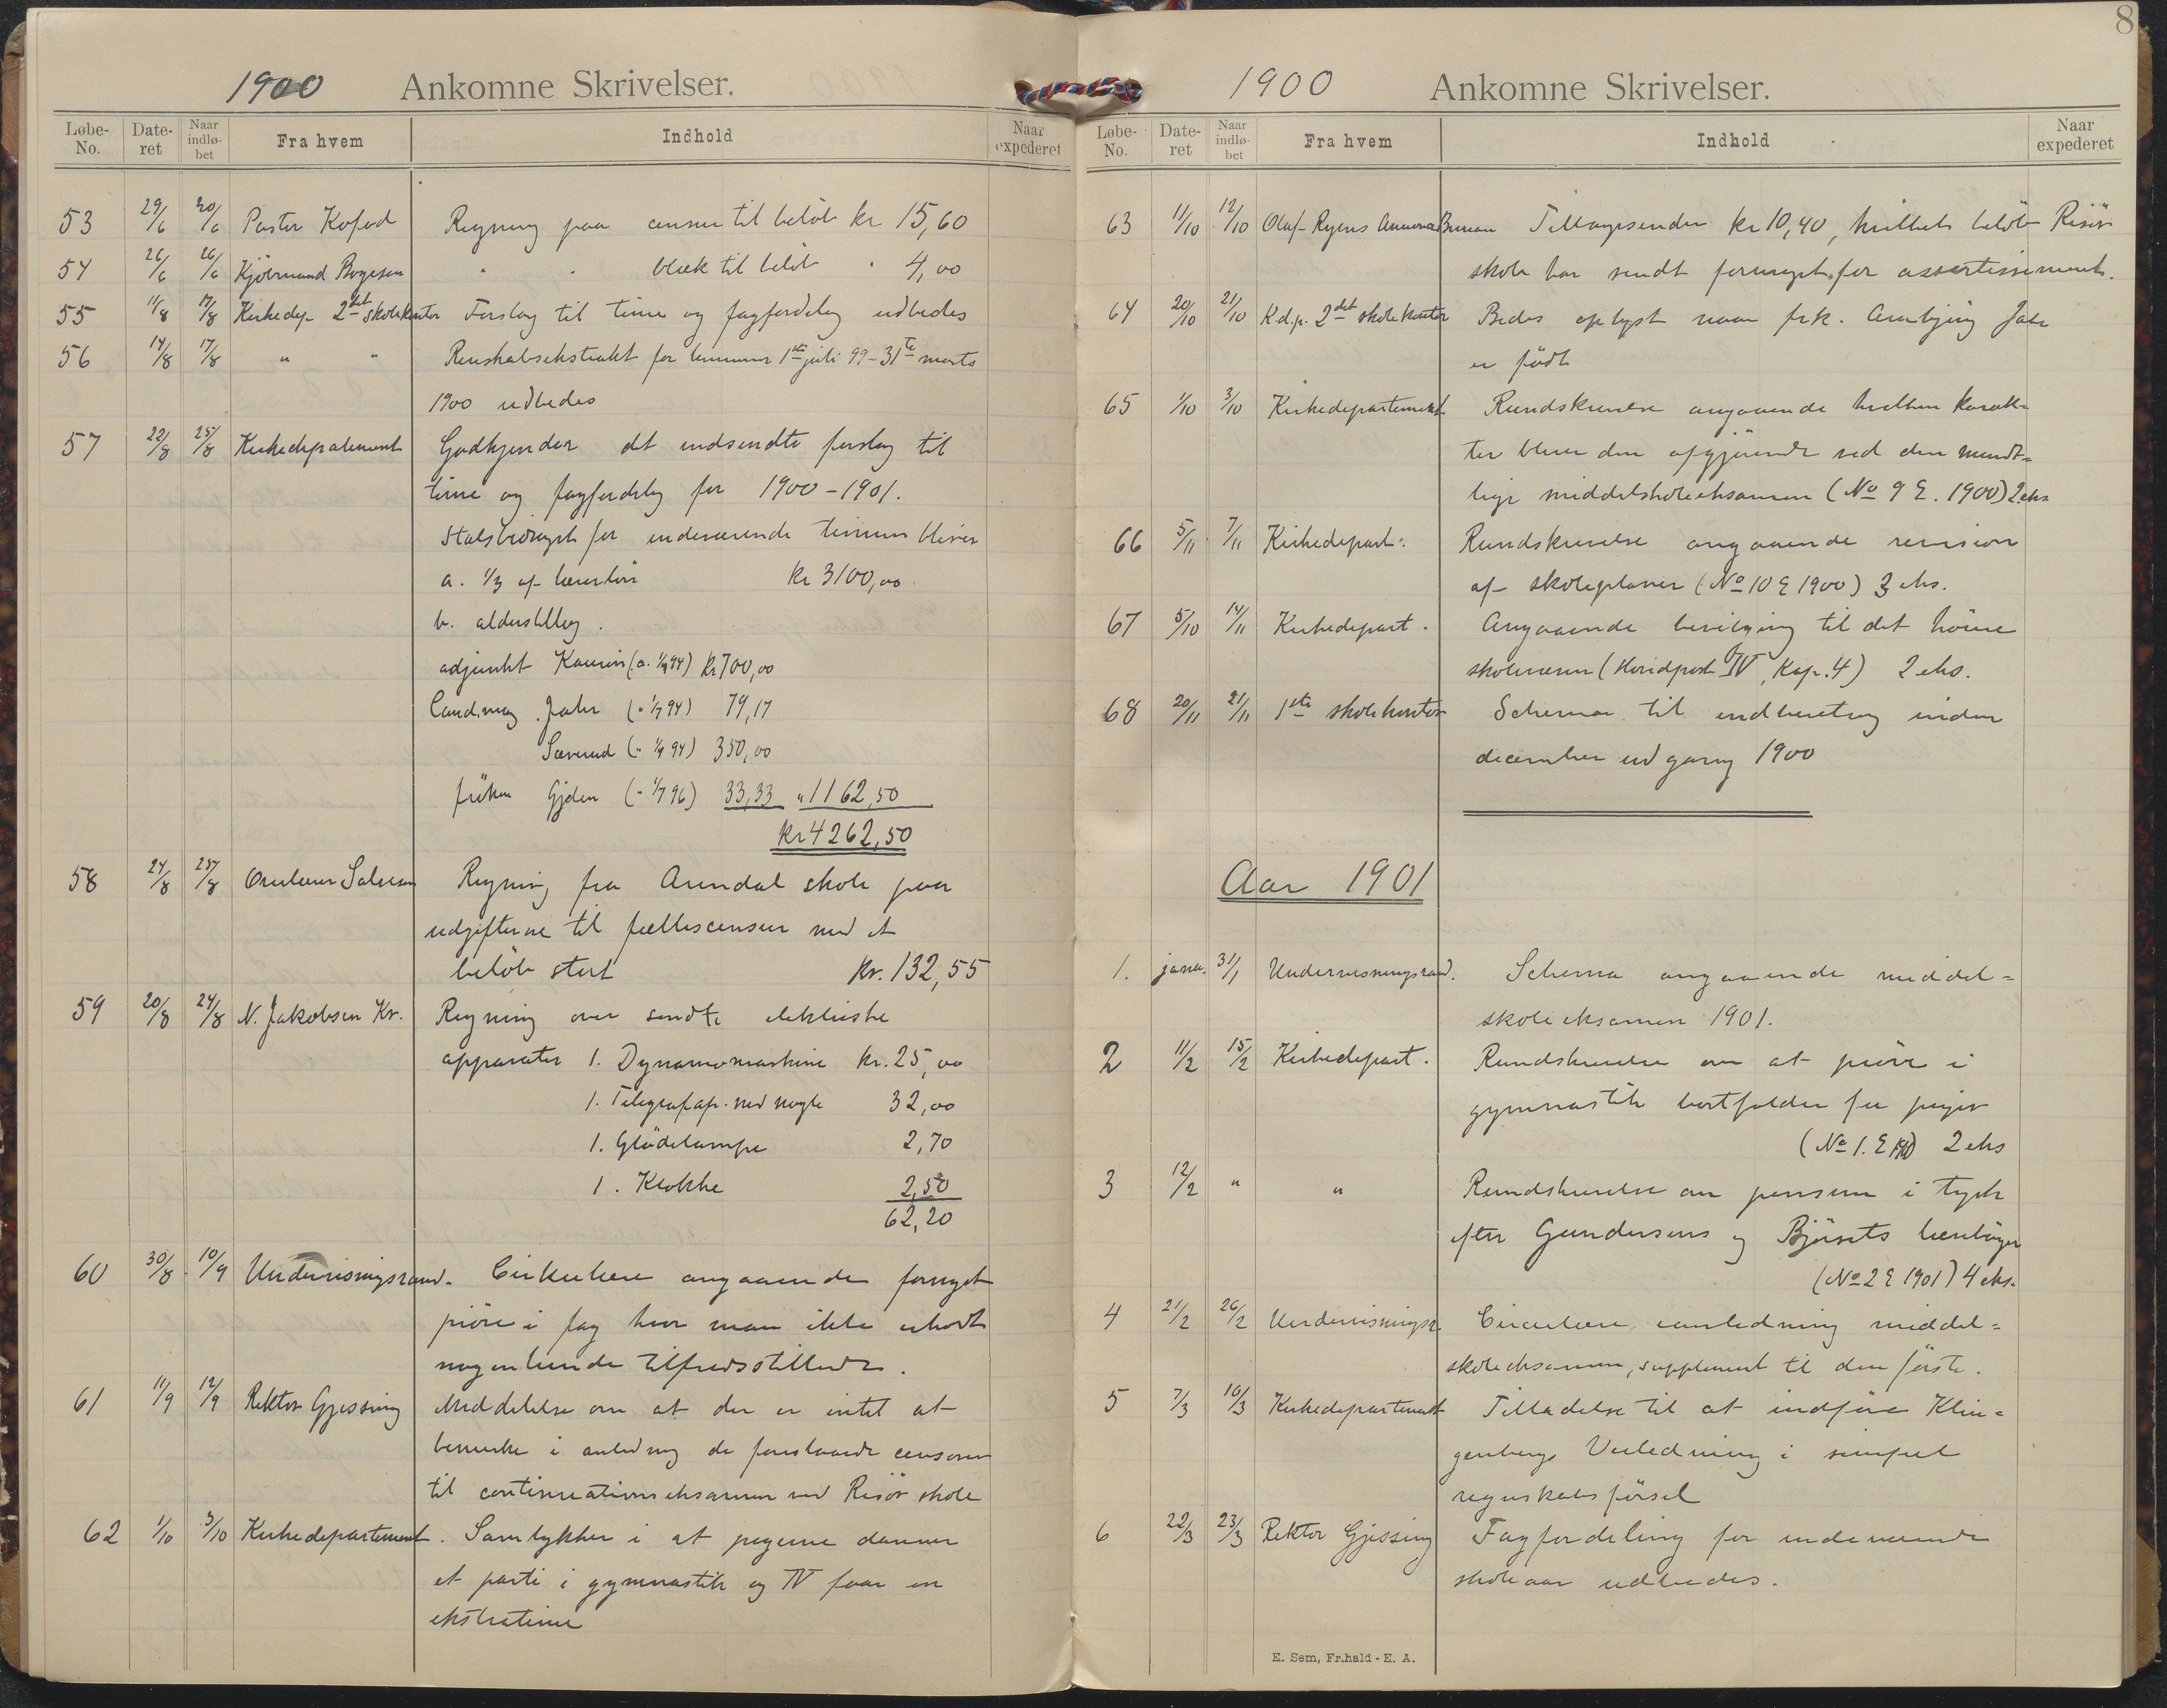 1900 Ankomne Skrivelser.
Løbe-No. Dateret Naar indløbet Fra hvem Indhold Naar expederet
53 29/6 30/6 Pastor Kofod Regning paa censur til beløb kr 15,60
54 26/6 26/6 Kjöbmand Bogesen " " blæk til beløb " 4,00
55 11/8 17/8 Kirkedep. 2det skolekontor Forslag til time og fagfordeling udbedes
56 14/8 17/8 " " Renskabsekstrakt for terminen 1ste juli 99-31te marts
1900 udbedes
57 22/8 25/8 Kirkedepatement Godkjender det indsendte forslag til
time og fagfordelg for 1900-1901.
Statsbidraget for indeværende termin bliver
a. 1/3 af lærerløn kr 3100,00
b. alderstillæg.
adjunkt Kaurin (a. 1/9 94) kr 700,00
Cand. mag. Jahr (" 1/7 94) 79,17
Sævrud (" 1/9 94) 350,00
fröken Gjden (" 1/7 96) 33,33 " 1162,50
kr 4262,50
58 24/8 25/8 Overlærer Salvesen Regning fra Arendal skole paa
udgifterne til fællescensur med et
beløb stort kr. 132,55
59 20/8 24/8 N. Jakobsen Kr. Regning over sendte elektriske
apparater 1. Dynamomaskine kr. 25,00
1. Telegrafap. med nøgle 32,00
1. Glödelampe 2,70
1. Klokke 2,50
62,20
60 30/8 10/9 Undervisningsraad. Cirkulære angaaende fornyet
pröve i fag hvor man ikke erholdt
nogenlunde tilfredsstillende.
61 11/9 12/9 Rektor Gjessing Meddelelse om at der er intet at
bemerke i anledng de foreslaaede censorer
til continuationseksamen ved Risör skole
62 1/10 3/10 Kirkedepartement. Samtykker i at pigerne danner
et parti i gymnastik og IV faar en
ekstratime
8
1900 Ankomne Skrivelser.
Løbe-No. Dateret Naar indløbet Fra hvem Indhold Naar expederet
63 11/10 12/10 Olaf Ryens Annonce Bureau Tilbagesender kr 10,40, hvilket beløb Risör
skole har sendt formeget for assertissement.
64 20/10 21/10 K.d.p. 2det skolekontor Bedes oplyst naar frk. Jahr
er født
65 1/10 3/10 Kirkedepartement Rundskrivelse angaaende hvilken karak-
ter bliver den afgjörende ved den mundt-
lige middelskoleeksamen (No 9 E. 1900) 2 eks
66 5/11 7/11 Kirkedepart: Rundskrivelse angaaende revision
af skoleplaner (No 10 E 1900) 3 eks.
67 5/10 14/11 Kirkedepart. Angaaende bevilgning til det höiere
skolevæsen (Hovidpost IV, Kap. 4) 2 eks.
68 20/11 21/11 1ste skolekontor Schema til indberetng inden
december udgang 1900
Aar 1901
1. janu. 31/1 Undervisningsraad. Schema angaaende middel-
skoleeksamen 1901.
2 11/2 15/2 Kirkedepart. Rundskrivelse om at pröve i
gymnastik bortfalder for piger
(No 1. E 1901) 2 eks
3 12/2 " " Rundskrivelse om pensum i tysk
efter Gundersens og Bjørsets lærebøger
(No 2 E 1901) 4 eks.
4 21/2 26/2 Undervisningsr. Circulære anledning middel-
skoleeksamen, supplement til den förste.
5 7/3 10/3 Kirkedepartement Tilladelse til at indføre Klin-
genbergs Veiledning i simpel
regnskabsförsel
6 22/3 23/3 Rektor Gjessing Fagfordeling for indeværende
skoleaar udbedes.
E. Sem, Fr.hald - E. A.